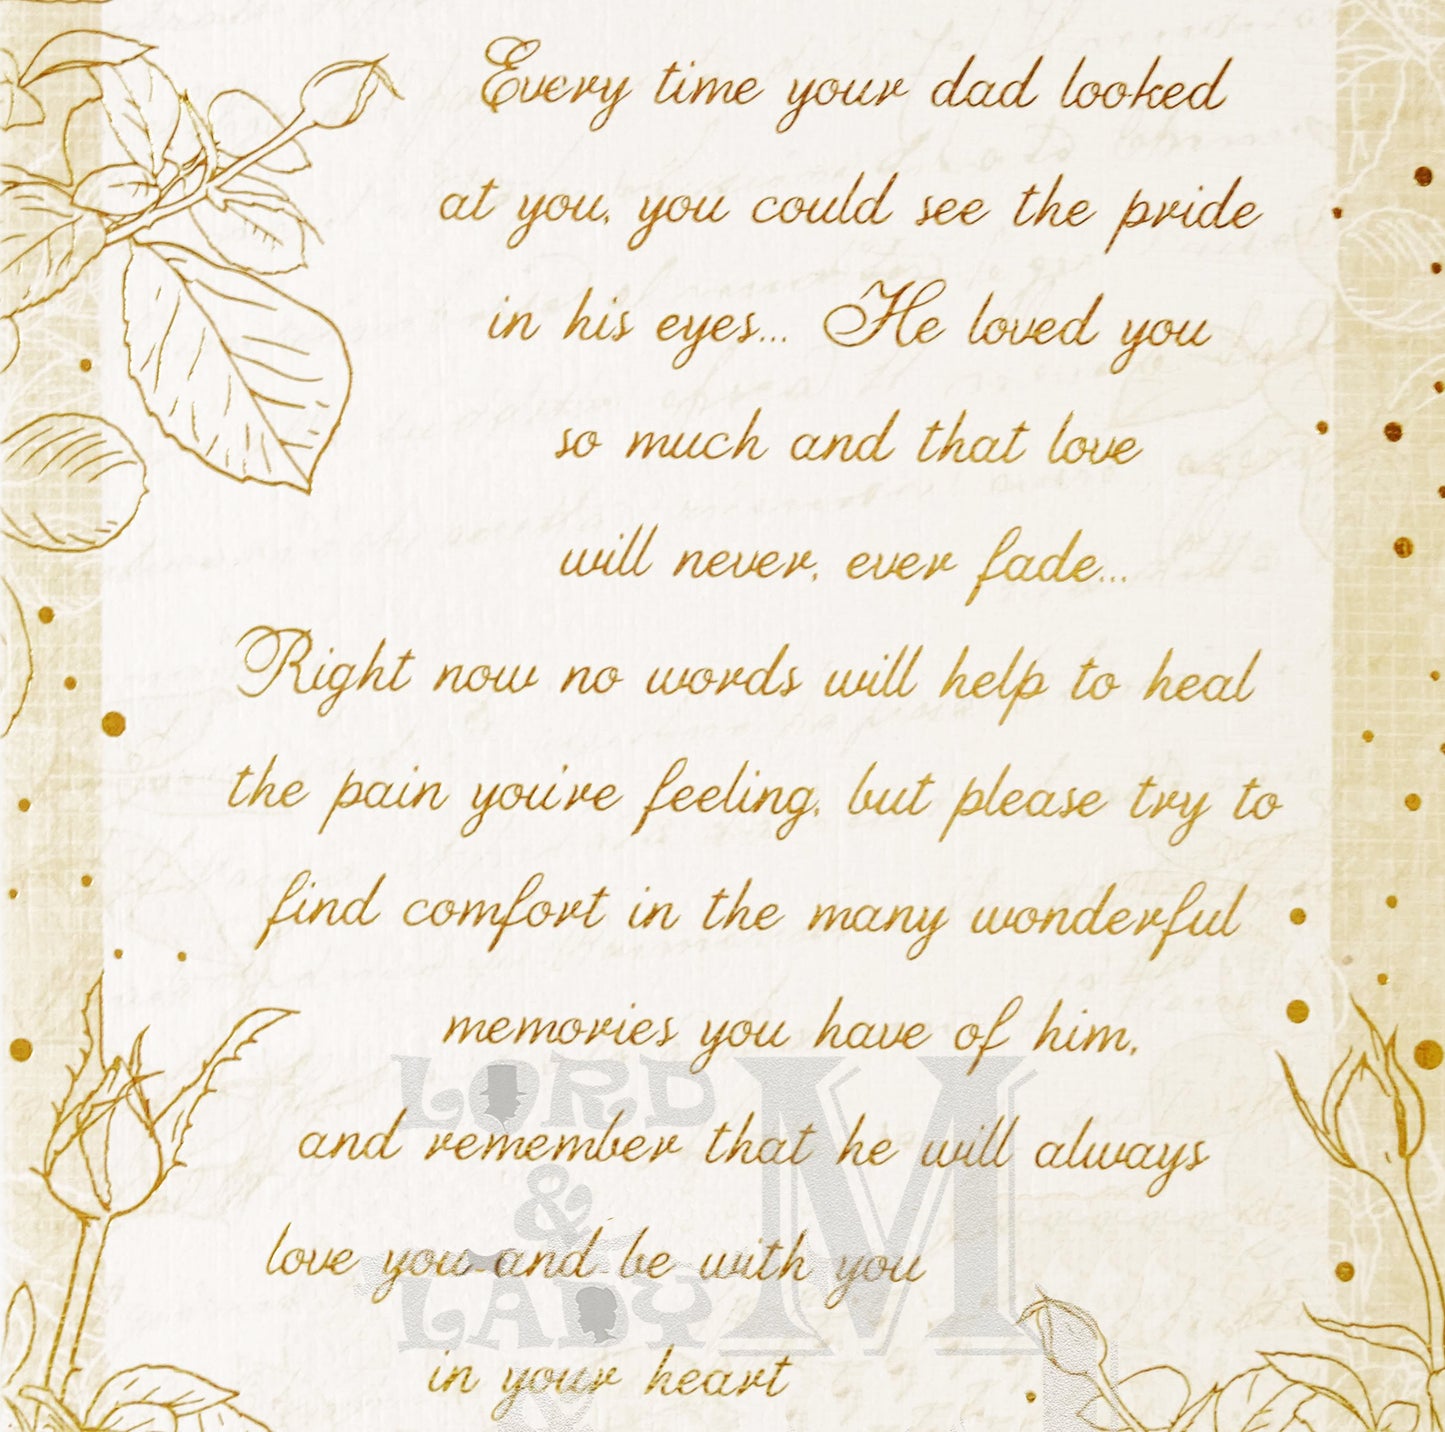 Every time your dad looked
at you, you could see the pride
in his eyes... He loved you
so much and that love
will never, ever fade...
Right now no words will help to heal
the pain you're feeling, but please try to
find comfort in the many wonderful
memories you have of him,
and remember that he will always
love you and be with you
in your heart
LORD
&
LADY
M